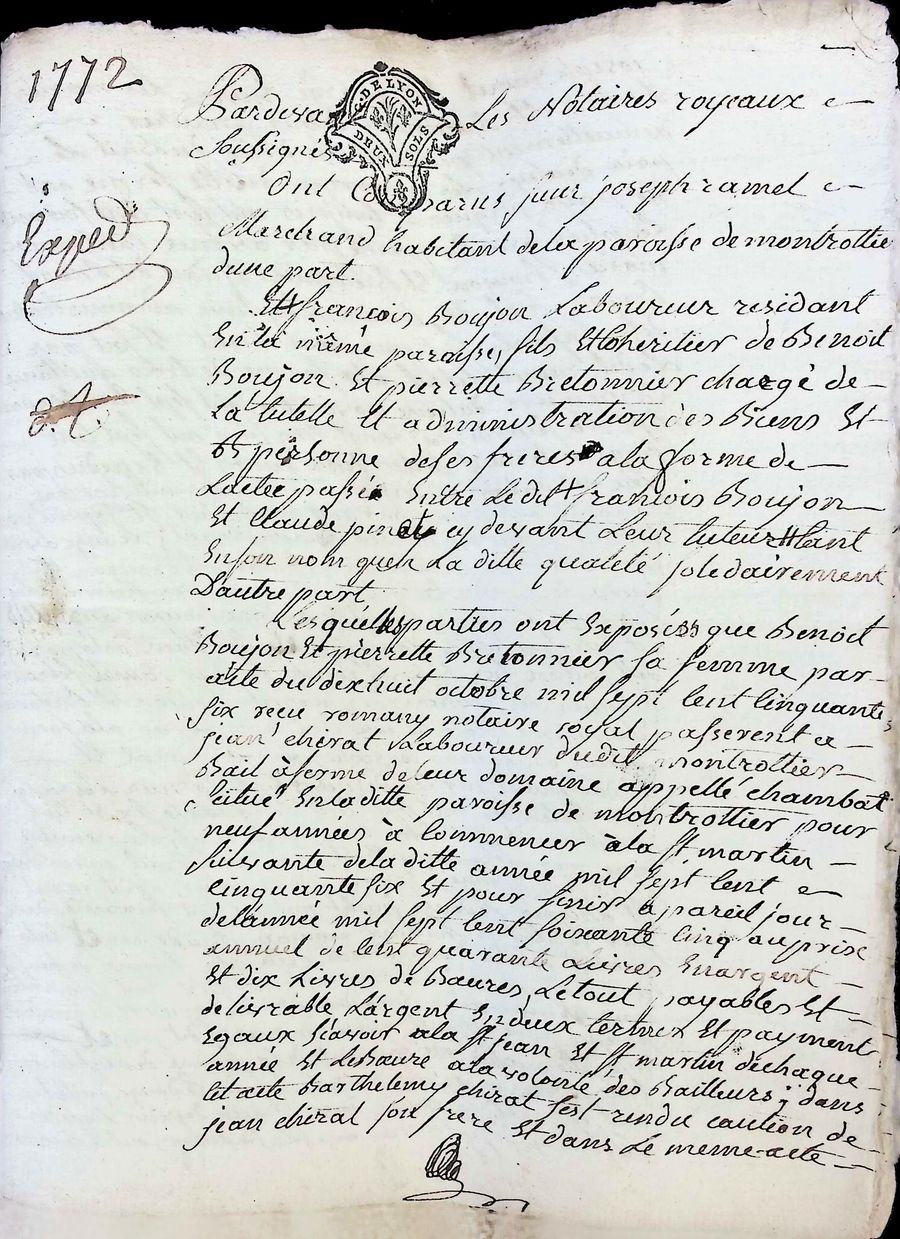 1772
G. DE LYON
DEUX SOLS
Pardeva Les Notaires royeaux
Soussignés
Ont Comparus sieur joseph ramel
Marchand habitant de la paroisse de montrottie
dune part
Expéd
Et françois Boujon Laboureur residant
En la même paroisse, fils Et Coheritier de Benoit
Boujon Et pierrette Bretonnier chargé de
La tutelle Et administration des Biens Et
personne de ses freres a la forme de
Lacte passé Entre Ledit françois Boujon
Et Claude cy devant Leur tuteur tant
En son nom quen La ditte qualité solidairement
Dautre part
Lesquelles parties ont Exposés que Benoit
Boujon Et pierrette Bretonnier sa femme par
acte du dixhuit octobre mil sept Cent Cinquante
six recu romany notaire royal passerent a
jean chirat Laboureur dudit montrottier
Bail à ferme de leur domaine appellé chambat
situé En la ditte paroisse de montrottier pour
neuf années à Commencer à la st martin
suivante de la ditte année mil sept Cent
Cinquante six Et pour finir a pareil jour
de lannée mil sept Cent soixante Cinq au prix
annuel de Cent quarante Livres En argent
Et dix Livres de Baures, Le tout payables Et
delivrable Largent En deux termes Et payment
Egaux sçavoir a la st jean Et st martin de chaque
année Et Le Baure a la volonté des Bailleurs; dans
Cet acte Barthelemy chirat sest rendu caution de
jean chirat son frere Et dans Le meme acte